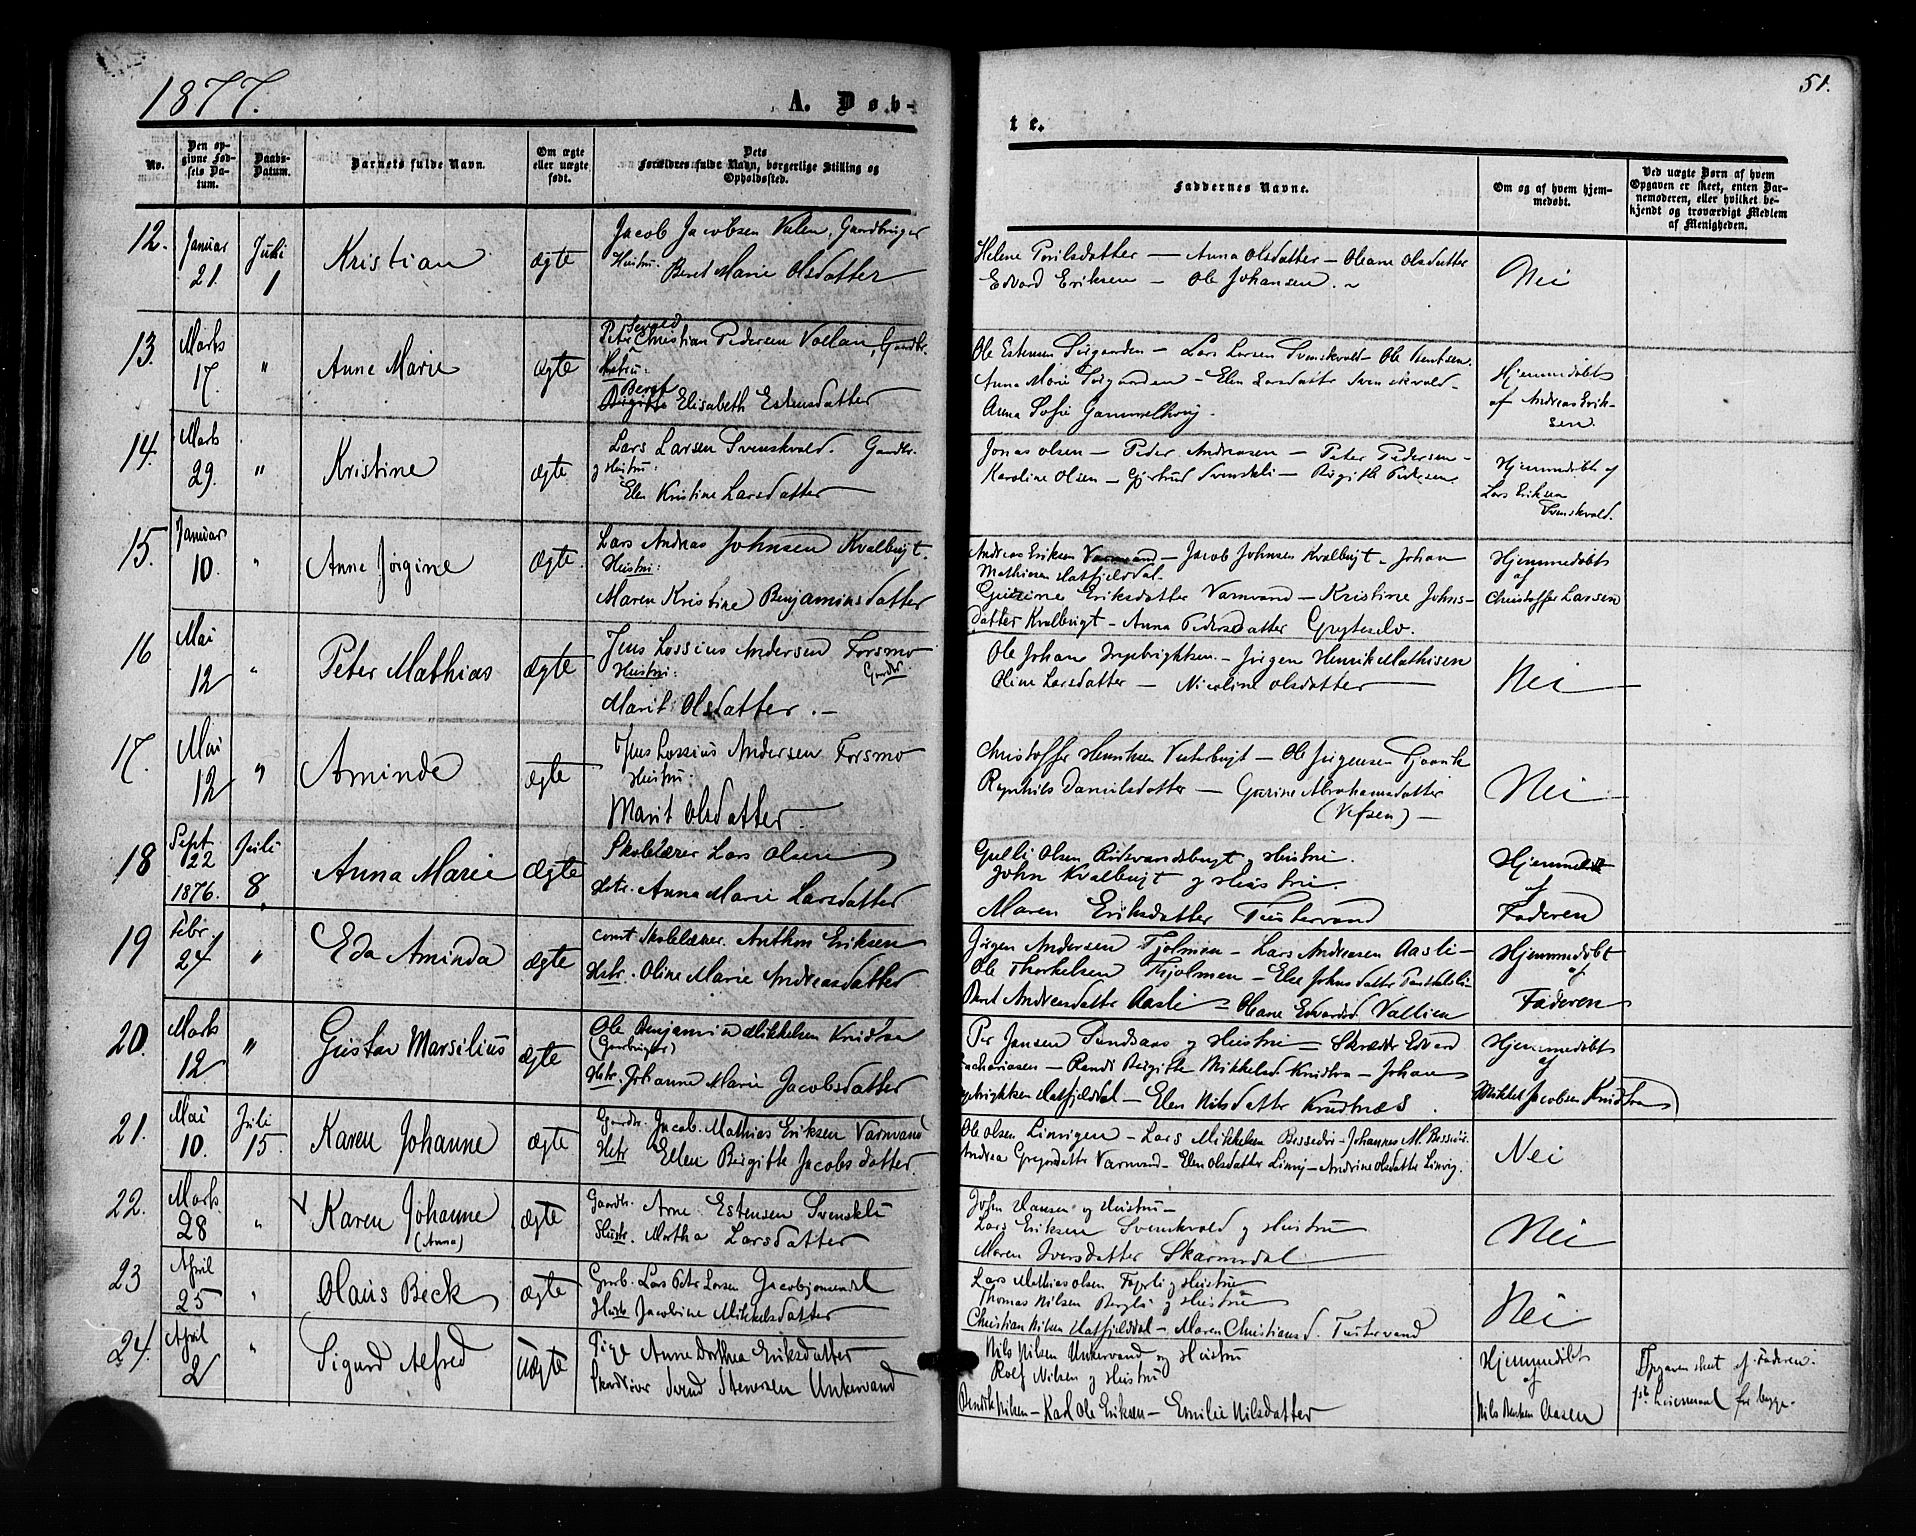 1877.
A. Døb-
te.
51.
No.
Den op-
givne Fød-
sels Da-
tum.
Daabs-
Datum.
Barnets fulde Navn.
Om ægte
eller uægte
født.
Dets
Forældres fulde Navn, borgerlige Stilling og
Opholdssted.
Faddernes Navne.
Om og af hvem hjem-
medøbt.
Ved uægte Børn af hvem
Opgaven er skeet, enten Bar-
nemoderen, eller hvilket be-
kjendt og troværdigt Medlem
af Menigheden.
12. Januar 21. Juli 1 Kristian ægte
Jacob Jacobsen Valen, Gaardbruger
Hustru: Beret Marie Olsdatter
Helene Torilsdatter — Anna Olsdatter — Oleane Olsdatter
Edvard Eriksen — Ole Johansen.
Nei
13. Marts 17. " Anne Marie ægte
Sevald
Peter Christian Pedersen Vollan, Gaardbr.
Hustru:
Beret
Birgitte Elisabeth Estensdatter
Ole Estensen Sørgaarden — Lars Larsen Svenskvold — Ole Bentsen.
Anna Marie Sørgaarden — Elen Larsdatter Svenskvold —
Anna Sofie Gammelhovig.
Hjemmedøbt
af Andreas Erik-
sen.
14. Marts 29. " Kristine ægte
Lars Larsen Svenskvold. Gaardbr.
og Hustru:
Elen Kristine Larsdatter
Jonas Olsen — Peder Andreasen — Peter Pedersen —
Karoline Olsen — Gjertrud Svenskli — Birgitte Pedersen
Hjemmedøbt af
Lars Eriksen
Svenskvold.
15. Januar 10. " Anne Jørgine ægte
Lars Andreas Johnsen Kvalbugt.
Hustru:
Maren Kristine Benjaminsdatter
Andreas Eriksen Varnvand — Jacob Johnsen Kvalbugt — Johan
Mathisen Hatfjelddal.
Gurine Eriksdatter Varnvand — Kristine Johns-
datter Kvalbugt — Anna Pedersdatter Gryteselv.
Hjemmedøbt
af
Christoffer Larsen
16 Mai 12 " Peter Mathias ægte
Jens Lossius Andersen Forsmo
Hustru: Gaardbr.
Marit Olsdatter.
Ole Johan Ingebrigtsen — Jørgen Henrik Mathisen
Oline Larsdatter — Nicoline Olsdatter
Nei
17. Mai 12 " Aminda ægte
Jens Lossius Andersen Forsmo
Hustru:
Marit Olsdatter.
Christoffer Henriksen Vesterbugt — Ole Jørgensen
Ragnhild Danielsdatter — Gurine Abrahamsdatter
(Vefsen) —
Nei
18 Sept 22 1876. Juli 8. Anna Marie ægte
Skolelærer Lars Olsen
Hstr. Anna Marie Larsdatter
Olsen Rødsvandsbugt og Hustru.
John Kvalbugt og Hustru.
Maren Eriksdatter Tustervand
Hjemmedøbt
af
Faderen
19 Febr. 24 " Eda Aminda ægte
const Skolelærer. Anthon Eriksen
Hstr. Oline Marie Andreasdatter
Jørgen Andersen Fjolmen — Lars Andreasen Aasli —
Ole Thorkelsen Fjolmen — Else Johnsdatter
Beret Andreasdatter Aasli — Oleane Edvardsd Vallien
Hjemmedøbt
af
Faderen
20. Marts 12. " Gustav Marsilius ægte
Ole Benjamin Mikkelsen Knudtraa
(Gaardbruger)
Hstr. Johanne Marie Jacobsdatter
Per Jansen Sundsaas og Hustru — Skrædder Edvard
Zachariasen — Randi Birgitte Mikkelsd. Knudtraa — Johan
Ingebrigtsen Hatfjelddal — Elen Nilsdatter Knudtnæs.
Hjemmedøbt
af
Mikkel Jacobsen Knudtraa
21. Mai 10. Juli 15. Karen Johanne ægte
Gaardbr. Jacob Mathias Eriksen Varnvand
Hstr Ellen Birgitte Jacobsdatter
Ole Olsen Linvigen — Lars Mikkelsen Bessedør — Johannes M. Bessedør.
Andrea Gregorsdatter Varnvand — Elen Olsdatter Linvig — Andrine Olsdatter Linvig.
Nei
22. Marts 28 " Karen Johanne ægte
(Anna)
Gaardbr. Arne Estensen Svenskli
Hustr. Martha Larsdatter
John Hansen og Hustru —
Lars Eriksen Svenskvold og Hustru
Maren Iversdatter Skarmodal
Nei
23 April 25 " Olaus Beck ægte
Gaardb. Lars Peter Larsen Jacobjonsdal
Hustr Jacobine Mikkelsdatter
Lars Mathias Olsen Fagerli og Hustru
Thomas Nilsen Berglø og Hustru
Christian Nilsen Hatfjelddal — Maren Christiansd. Tustervand
Nei
24. April 2 " Sigurd Alfred Uægte
Pige Anne Dorthea Eriksdatter
Svend Stenersen Unkervand
Nils Nilsen Unkervand og Hustru
Rolf Nilsen og Hustru
Bendik Nilsen — Karl Ole Eriksen — Emilie Nilsdatter
Hjemmedøbt
af
Nils Bentsen Aasen
Opgaven skeet af Faderen.
1ste Leiermaal for begge.